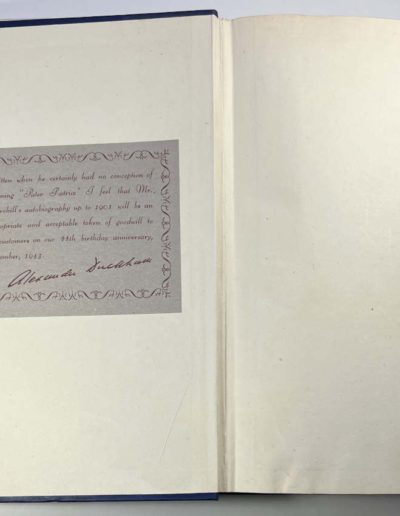 tten when he certainly had no conception of
ming "Pater Patriæ" I feel that Mr.
rchill's autobiography up to 1902 will be an
opriate and acceptable token of goodwill to
customers on our 44th birthday anniversary,
ember, 1943
Alexander Duckham